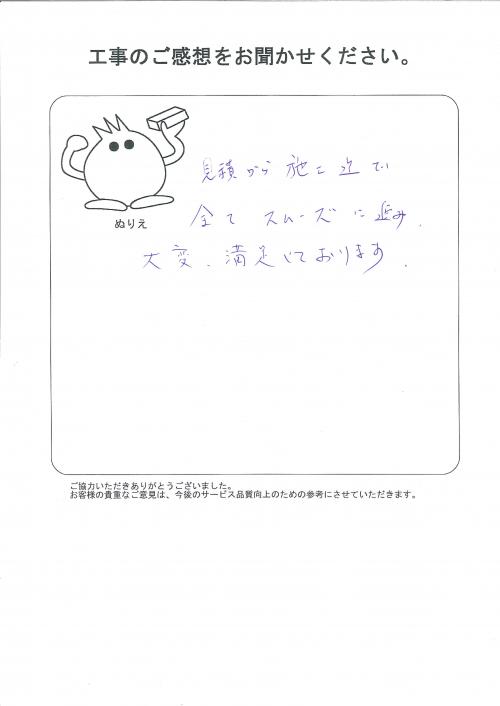 工事のご感想をお聞かせください。
見積から施工迄で
全てスムーズに進み、
大変、満足しております。
ぬりえ
ご協力いただきありがとうございました。
お客様の貴重なご意見は、今後のサービス品質向上のための参考にさせていただきます。